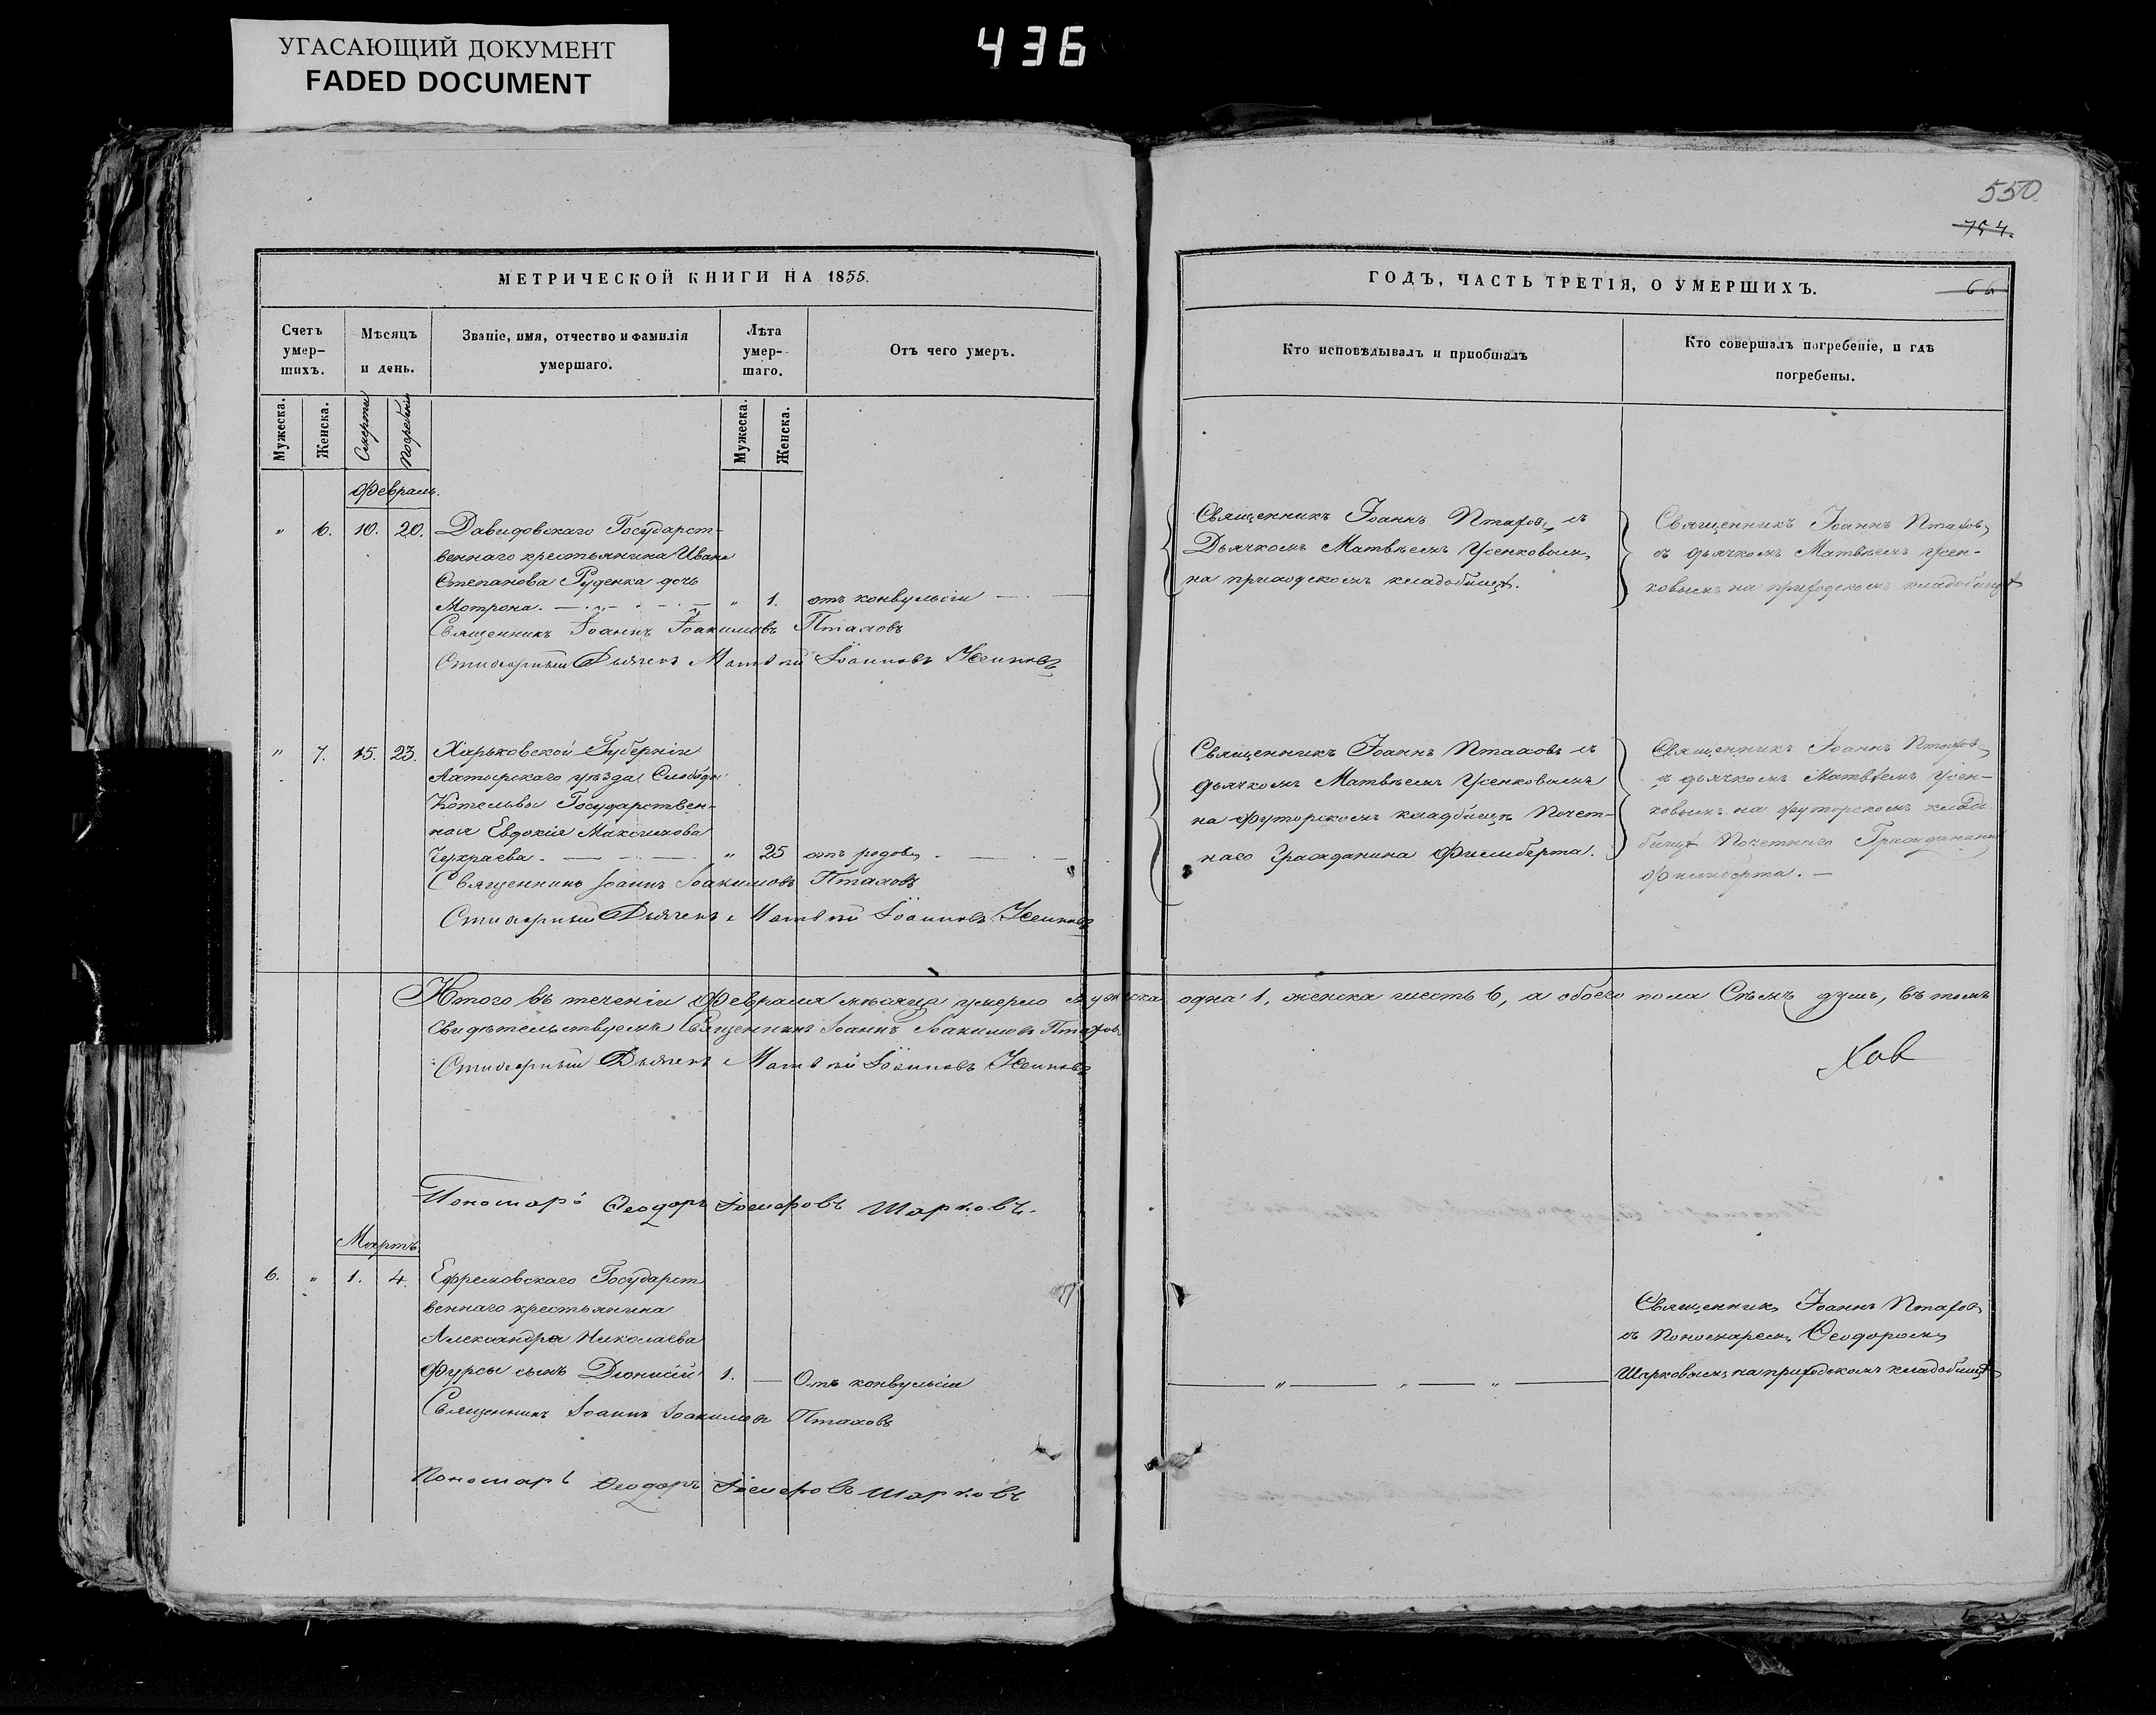 УГАСАЮЩИЙ ДОКУМЕНТ
FADED DOCUMENT
436
550.
754.
МЕТРИЧЕСКОЙ КНИГИ НА 1855.
Счетъ умер-шихъ.
Мѣсяцъ и день.
Званіе, имя, отчество и фамилія умершаго.
Лѣта умер-шаго.
Отъ чего умеръ.
Мужеска.
Женска.
Смерти
Погребенія
Мужеска.
Женска.
Февраль.
„ 6. 10. 20. Давидовскаго Государст-
веннаго крестьянина Ивана
Степанова Руденка дочь
Мотрона. „ 1. отъ конвульсіи
Священникъ Іоаннъ Іоакимовъ Птаховъ
Стихарный Дьячекъ Матвѣй Іоанновъ Усенковъ
„ 7. 15. 23. Харьковской Губерніи
Ахтырскаго уѣзда Слободы
Котельвы Государствен-
ная Евдокія Максимова
„ 25 отъ родовъ
Священникъ Іоаннъ Іоакимовъ Птаховъ
Стихарный Дьячекъ Матвѣй Іоанновъ Усенковъ
Итого въ теченіи Февраля мѣсяца умерло мужеска
Свидѣтельствуемъ Священникъ Іоаннъ Іоакимовъ Птаховъ
Стихарный Дьячекъ Матвѣй Іоанновъ Усенковъ
Пономарь Ѳеодоръ Іосифовъ Шарковъ.
Мартъ
6. „ 1. 4. Ефремовскаго Государст
веннаго крестьянина
Александра Николаева
Фурсы сынъ Діонисій 1. — Отъ конвульсіи
Священникъ Іоаннъ Іоакимовъ Птаховъ
Пономарь Ѳеодоръ Іосифовъ Шарковъ
ГОДЪ, ЧАСТЬ ТРЕТІЯ, О УМЕРШИХЪ.
Кто исповѣдывалъ и пріобщалъ
Кто совершалъ погребеніе, и гдѣ
погребены.
Священникъ Іоаннъ Птаховъ съ
Дьячкомъ Матвѣемъ Усенковымъ
на приходскомъ кладбищѣ.
Священникъ Іоаннъ Птаховъ
съ дьячкомъ Матвѣемъ Усен-
ковымъ на приходскомъ кладбищѣ
Священникъ Іоаннъ Птаховъ съ
дьячкомъ Матвѣемъ Усенковымъ
на Футорскомъ кладбищѣ Почет-
наго Гражданина Филиберта.
Священникъ Іоаннъ Птаховъ
съ дьячкомъ Матвѣемъ Усен-
ковымъ на футорскомъ клад-
бищѣ Почетнаго Гражданина
Филиберта.
одна 1, женска шесть 6, а обоего пола Семь душъ, въ томъ
Священникъ Іоаннъ Птаховъ
съ Пономаремъ Ѳеодоромъ
Шарковымъ на приходскомъ кладбищѣ